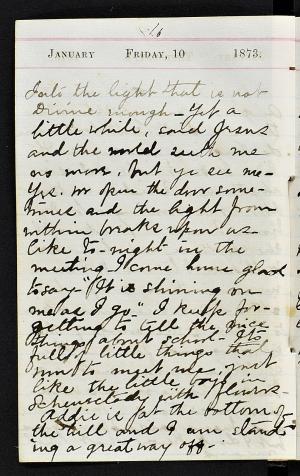 16
January Friday, 10 1873.
Fails the light that is not
Divine enough – Yet a
little while, said Jesus
and the world seeth me
no more, but ye see me –
Yes. we open the door some-
times and the light from
within breaks upon us
like to-night in the
meeting. I come home glad
to say – "It is shining on
me as I go –" I keep for-
getting to tell the nice
things about school – It's
full of little things that
run to meet me, just
like the little boys in
Schenectady with flowers –
Addie is at the bottom of
the hill and I am stand-
ing a great way off –